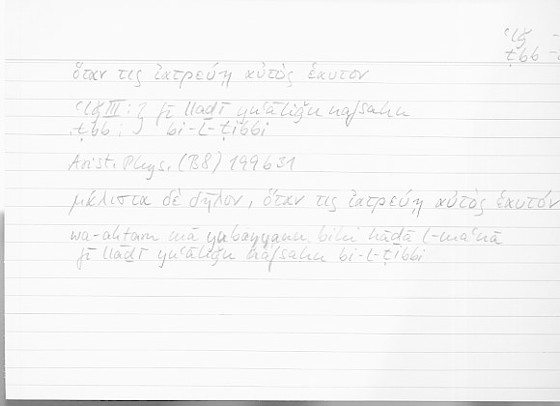 ʿlǧ
ṭbb
ὅταν τις ἰατρεύῃ αὐτὸς ἑαυτόν
ʿlǧ III : } fī lladī yuʿāliǧu nafsahu
ṭbb : } bi-l-ṭibbi
Arist. Phys. (B8) 199b31
μάλιστα δὲ δῆλον, ὅταν τις ἰατρεύῃ αὐτὸς ἑαυτόν
wa-aḥtaru mā yubayyanu bihī hāḏā l-maʿnā
fī lladī yuʿāliǧu nafsahu bi-l-ṭibbi